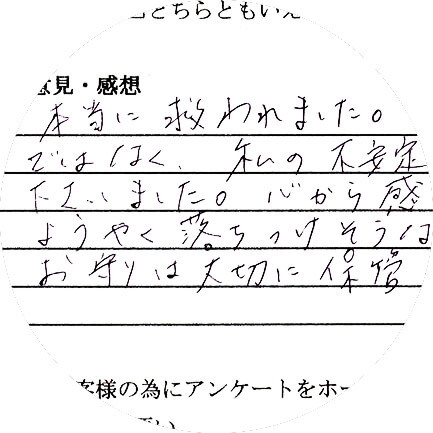 どちらともいえ
意見・感想
本当に救われました。
ではなく、私の不安定
下さいました。心から感
ようやく落ちつけそうな
お守りは大切に保管
客様の為にアンケートをホー